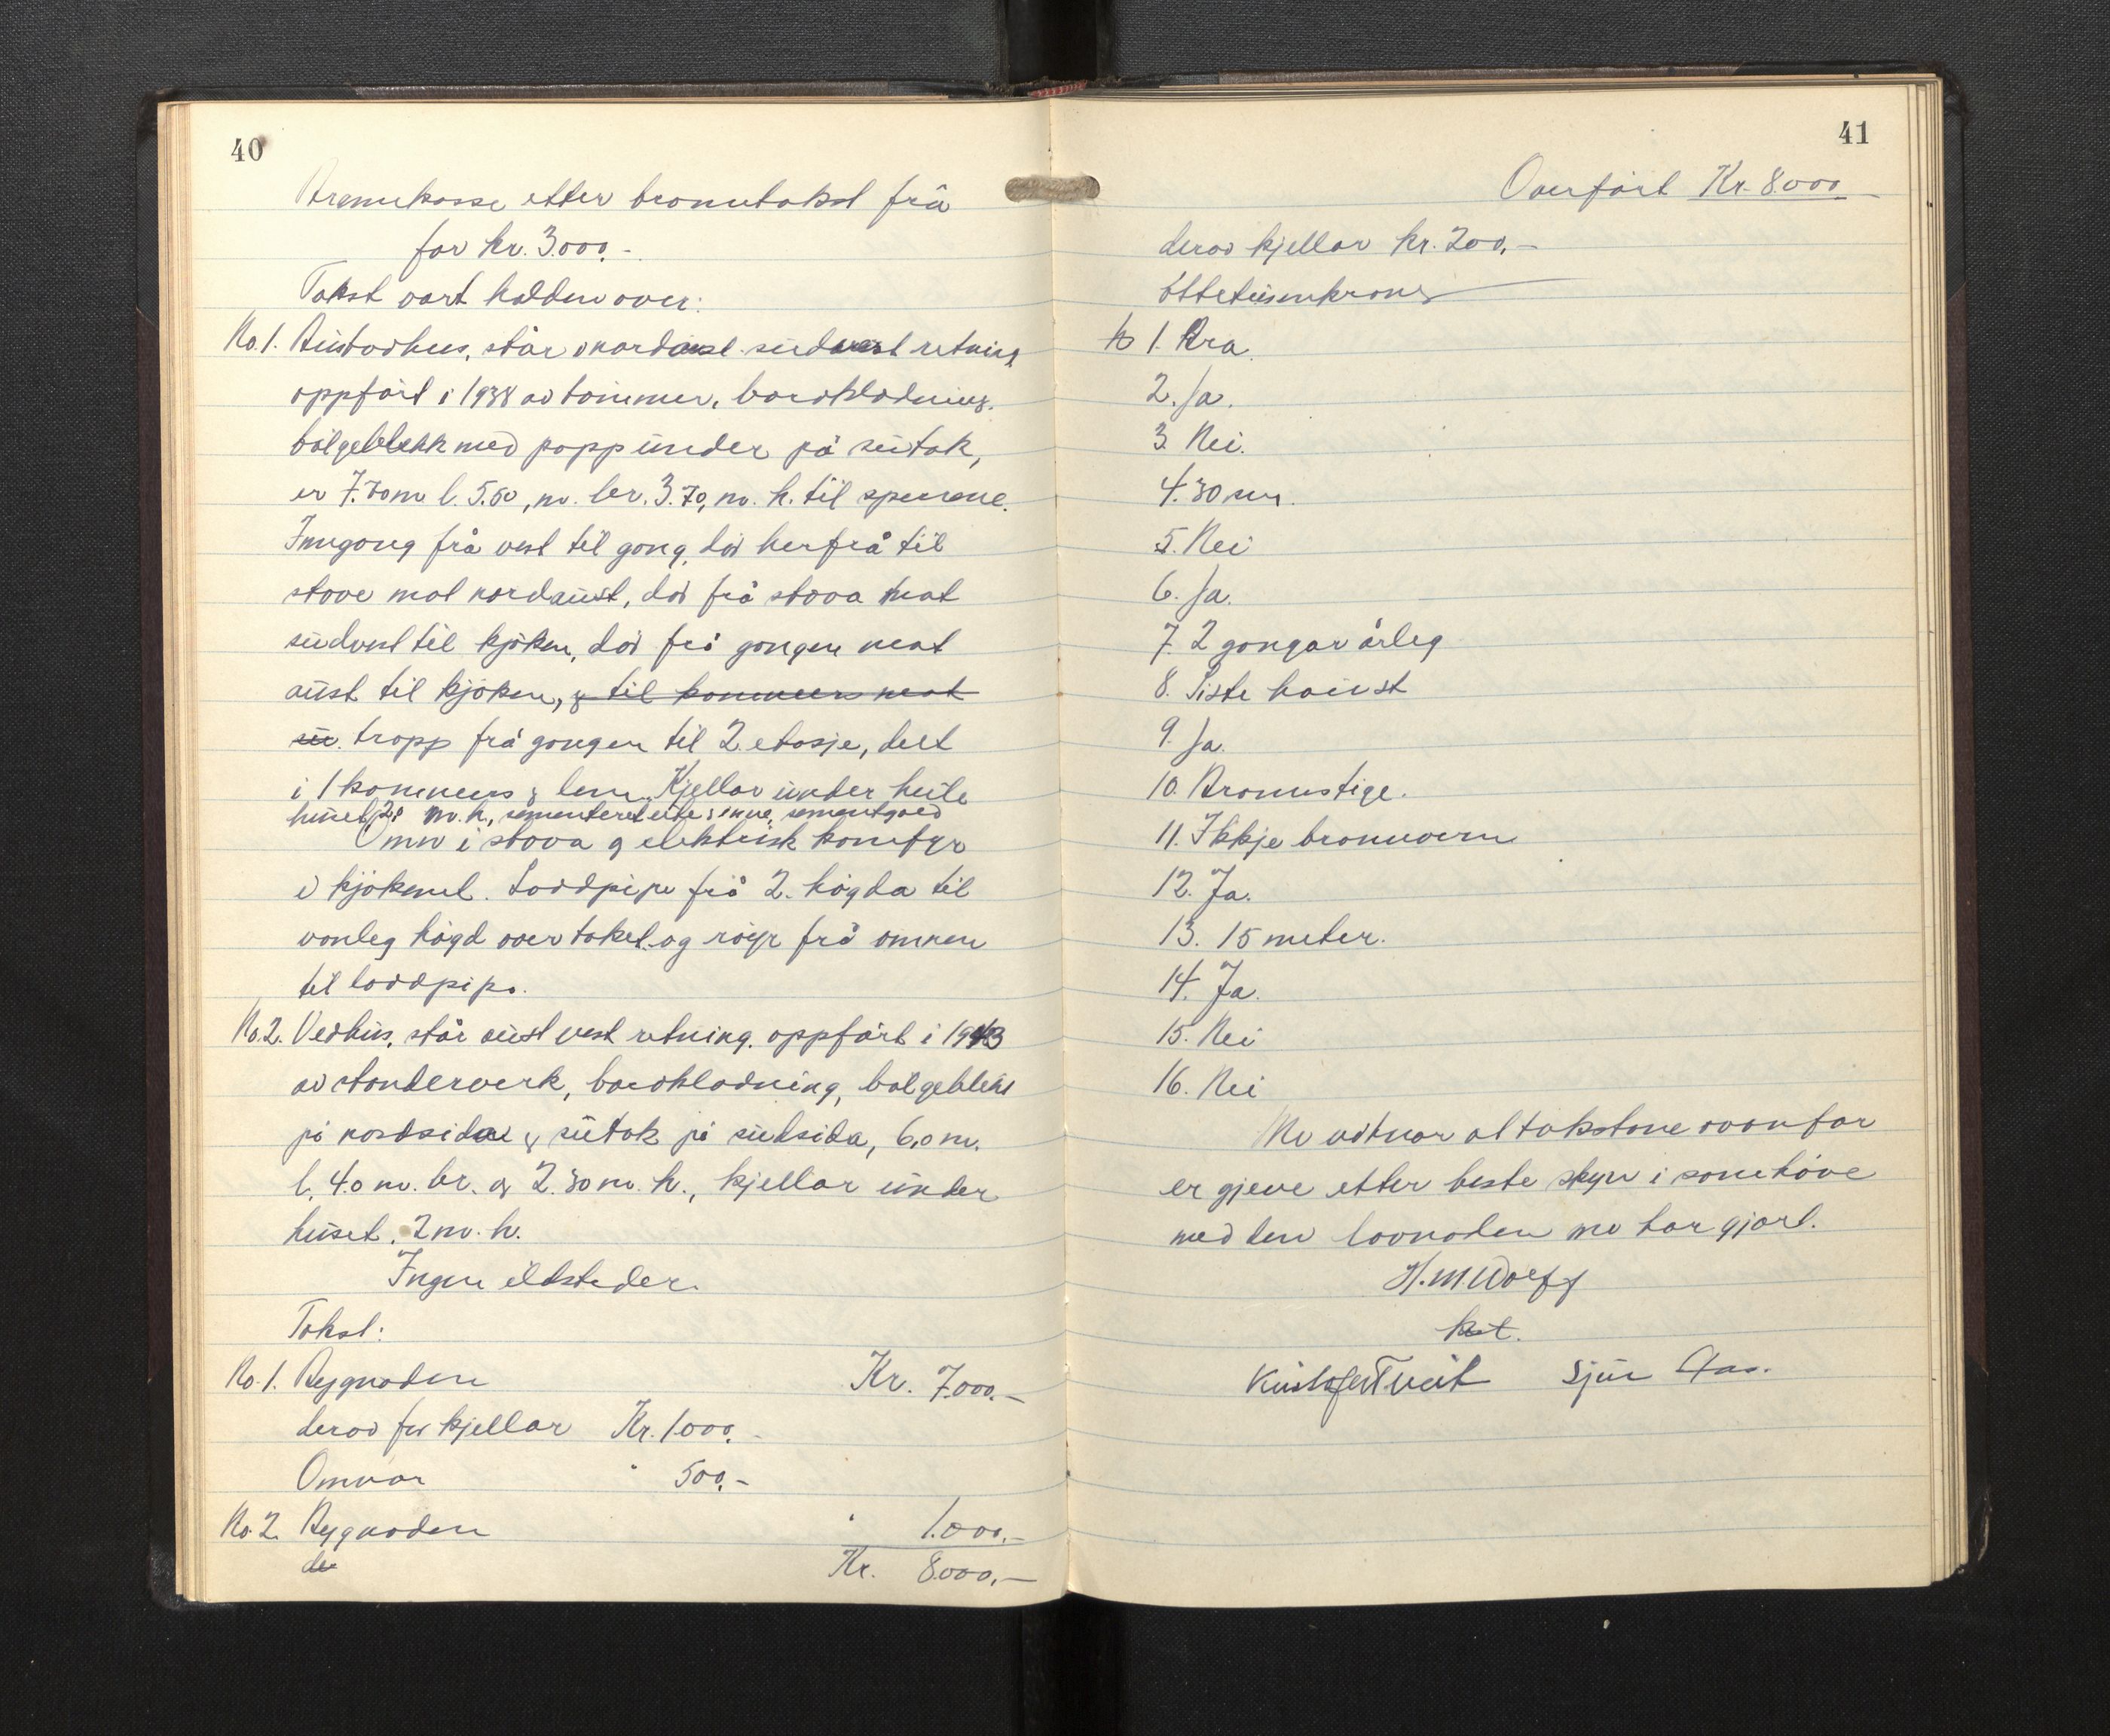 40
Brannkasse etter branntakst frå
for kr. 3.000.-
Takst vart halden over:
No. 1. Bustadhus, står i nordaust-sudvest retning
oppført i 1938 av tømmer, bordkledning.
bølgeblekk med papp under på sutak,
er 7.70 m l. 5.50, m. br. 3.70, m. h. til sperrene.
Inngong frå vest til gong, dør herfrå til
stove mot nordaust, dør frå stova mot
sudvest til kjøken, dør frå gongen mot
aust til kjøken, & til kammers mot
su. tropp frå gongen til 2. etasje, delt
i 1 kammers & lem. Kjellar under heile
huset, 2 m. h., sementeret
Omn i stova og elektrisk komfyr
i kjøkenet. Loddpipe frå 2. høgda til
vanleg høgd over taket og røyr frå omnen
til loddpipa.
No. 2. Vedhus, står aust vest retning. oppført i 1943
av standerverk, bordkledning, bølgeblekk
på nordsida & sutak på sudsida, 6,0 m.
l. 4.0 m. br. og 2.30 m. h., kjellar under
huset. 2 m. h.
Ingen eldsteder.
Takst:
No. 1. Bygnaden Kr. 7.000.-
derav for kjellar Kr. 1.000.-
Omnar " 500.-
No. 2. Bygnaden " 1.000.-
de Kr. 8.000.-
41
Overført Kr. 8.000.-
derav kjellar kr. 200.-
Åttetusenkroner
1. Bra.
2. Ja.
3. Nei.
4. 30 cm.
5. Nei
6. Ja.
7. 2 gongar årleg
8. Siste haust
9. Ja.
10. Brannstige.
11. Ikkje brannvern
12. Ja.
13. 15 meter.
14. Ja.
15. Nei
16. Nei
Me vitnar at takstane ovanfor
er gjeve etter beste skyn i samhøve
med den lovnaden me har gjort.
H. M. Wolff
Kristofer Tveit Sjur Aas.